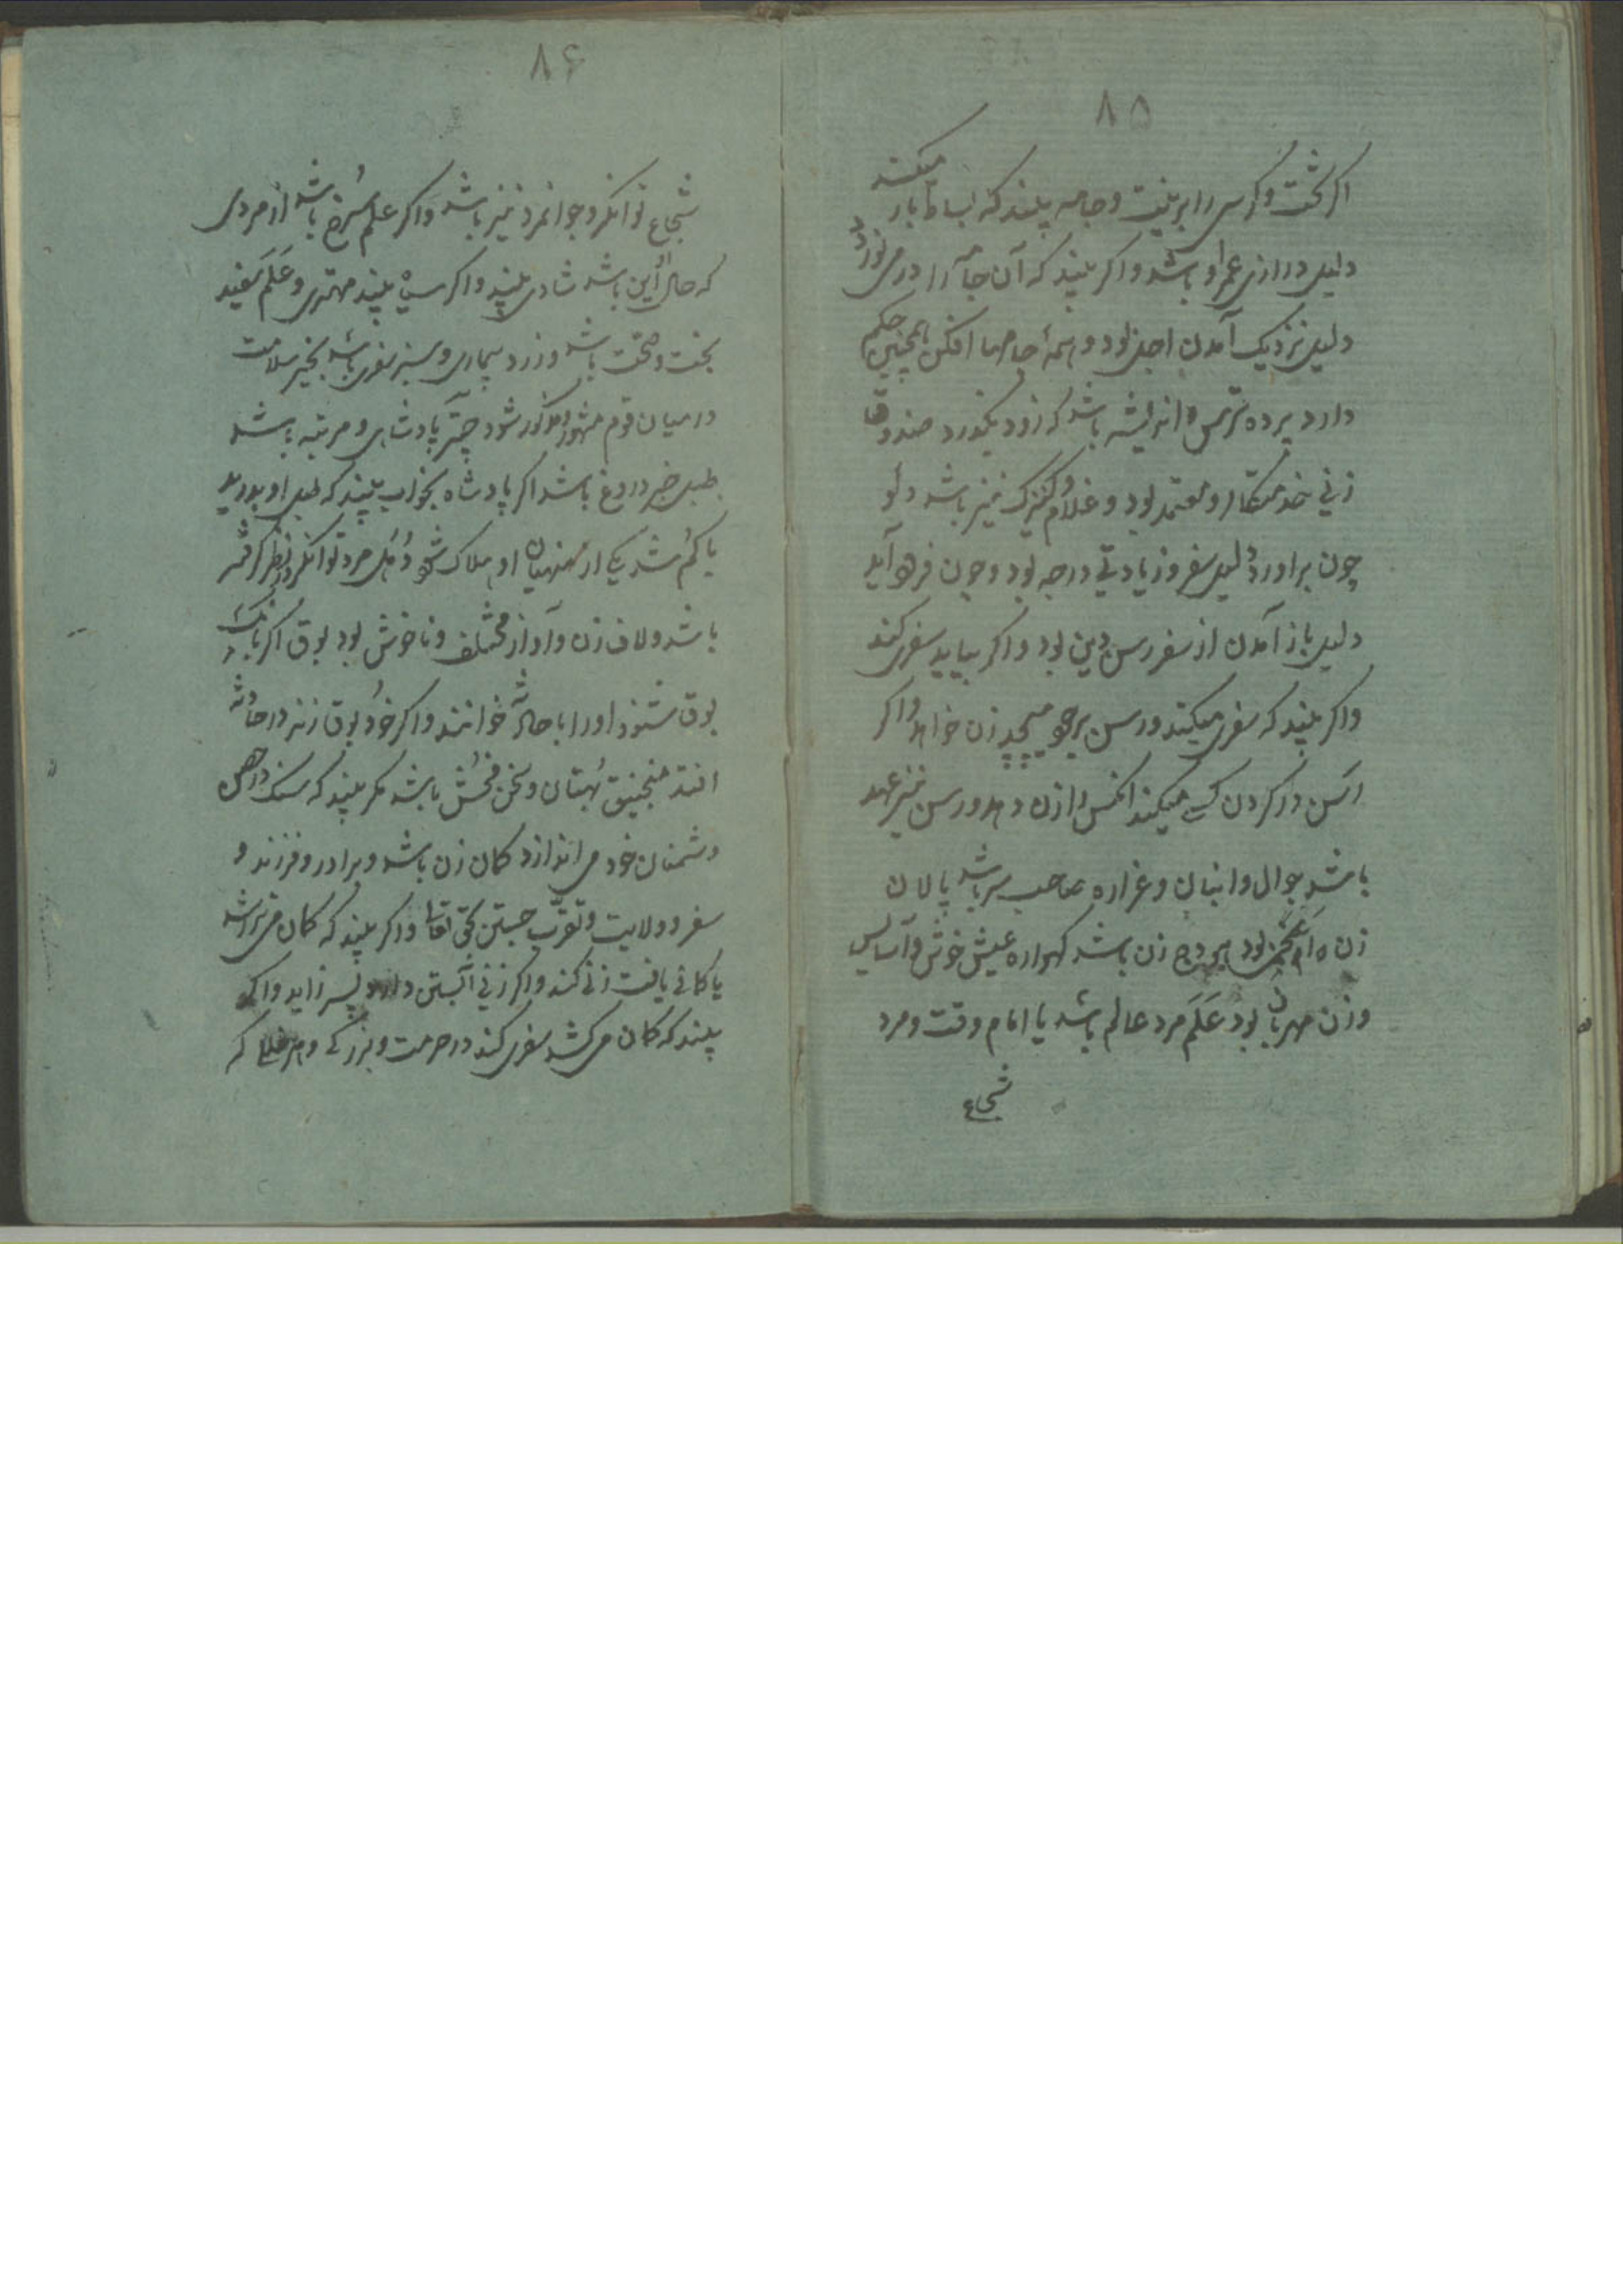 ۸۵
اکر تخت و کرسی را بر بلیت و جامه بیند که بساط باز میکند
دلیل درازی عمر او باشد و اکر بیند که آن جامه را در می نوردد
دلیل نزدیک آمدن اجل بود و همهٔ جامها افکن همچنین حکم
دارد پرده ترس و اندیشه باشد که زود بگذرد صندوقها
زنی خدمتکار و معتمد بود و غلام و کنیزک نیز باشد دلو
چون براورد دلیل سفر و زیادتی درجه بود و چون فرو آید
دلیل باز آمدن از سفر رسن دین بود و اکر بیاید سفر کند
واکر بیند که سفر میکند و رسن بر چو میپیچد زن خواهد و اکر
رسن در کردن کسی میکند انکس را زن دهد و رسن نیز عهد
باشد جوال و انبان و غراره صاحب سر باشد پالان
زن بود هودج زن باشد کهواره عیش خوش و آسایش
و زن مهربان بود عَلَم مرد عالم باشد یا امام وقت و مرد
شجاع
۸۶
شجاع توانکر و جوانمرد نیز باشد و اکر علم سُرخ باشد از مردی
که حال او این باشد شادی بیند و اکر سیاه بیند مهتری و عَلَم سفید
بخت و صحّت باشد و زرد بیماری و سبز سفری باشد بخیر سلامت
در میان قوم مشهور و مذکور شود چتر پادشاهی و مرتبه باشد
طبل خبر دروغ باشد اکر پادشاه بخواب بیند که طبل او بدرید
یا کم شد یکی از منهیان او هلاک شود دُهُل مرد توانکر و نظر کرفته
باشد و لاف زن و آواز مختلف و ناخوش بود بوق اکر بانک
بوق شنود او را با حادثه خوانند و اکر خود بوق زند در حادثه
افتد منجنیق بُهتان و سخن فحش باشد مکر بیند که سنک در حصن
دشمنان خود می اندازد کمان زن باشد و برادر و فرزند و
سفر و ولایت و تقرّب جستن بحق تعالی و اکر بیند که کمان می تراشد
یا کمانی یافت زنی کند و اکر زنی آبستن دارد پسر زاید و اکر
بیند که کمان می کشد سفری کند در حرمت و بزرکی و که